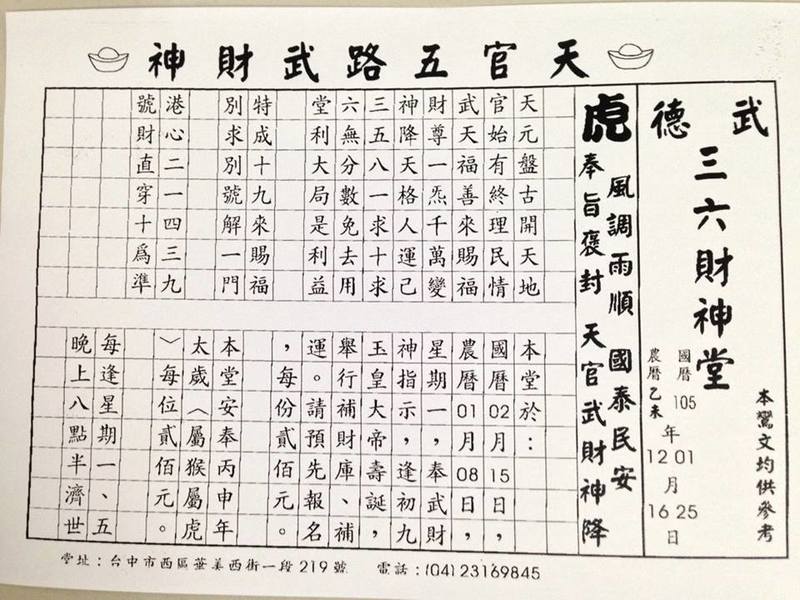 天官五路武財神
武德
三六財神堂
國曆 105 年 01 月 25 日
農曆乙未 年 12 月 16 日
本鸞文均供參考
虎
風調雨順 國泰民安
奉旨褒封 天官武財神降
天元盤古開天地
官始有終理民情
武天福善來賜福
財尊一炁千萬變
神降天格人運己
三五八一求十求
六無分數免去用
堂利大局是利益
特成十九來賜福
別求別號解一門
港心二一四三九
號財直穿十爲準
本堂於：
國曆02月15日，
農曆01月08日，
星期一，奉武財
神指示，逢初九
玉皇大帝壽誕，
舉行補財庫、補
運。請預先報名
，每份貳佰元。
本堂安奉丙申年
太歲（屬猴屬虎
）每位貳佰元。
每逢星期一、五
晚上八點半濟世
堂址：台中市西區華美西街一段 219 號 電話：(04)23169845